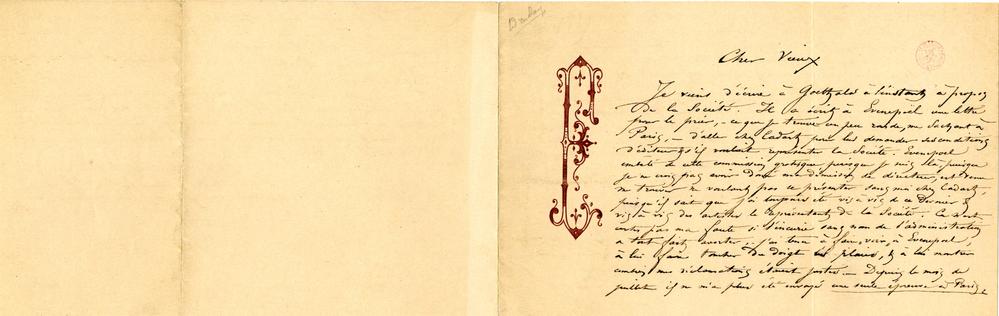 Cher Vieux
Je viens d'écrire à Goethals à l'instant à propos
de la Société. Il a écrit à Evenepoel une lettre
pour le prier, – ce que je trouve un peu raide, me sachant à
Paris, – d'aller chez Cadart pour lui demander ses conditions
d'éditeur s'il voulait représenter la Société. Evenepoel
embêté de cette commission grotesque puisque je suis là, puisque
je ne crois pas avoir donné ma démission de directeur, est venu
me trouver ne voulant pas se présenter sans moi chez Cadart,
puisqu'il sait que j'ai toujours été vis à vis de ce dernier &
vis à vis des artistes le représentant de la Société. Ce n'est
certes pas ma faute si l'incurie sans nom de l'administration
a tout fait avorter. j'ai tenu à faire voir, à Evenepoel,
à lui faire toucher du doigt les plaies, & à lui montrer
combien mes réclamations étaient justes. – Depuis le mois de
juillet il ne m'a plus été envoyé une seule épreuve à Paris,